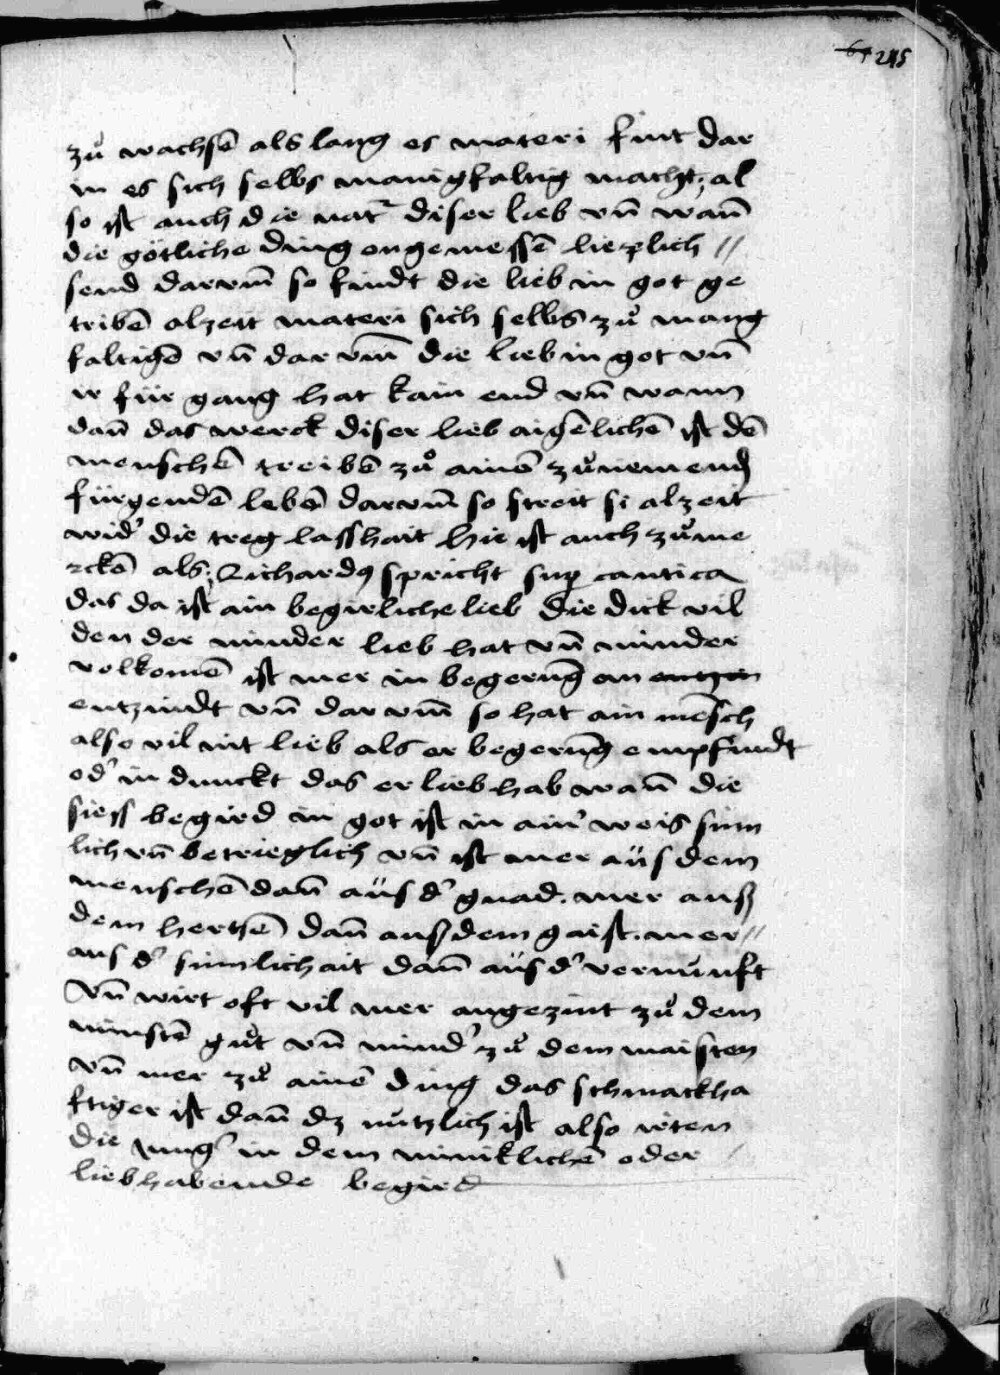 245
zů wachsē als lang es materi fint dar
in es sich selbs manigfaltig macht, al
so ist auch die nat̄ diser lieb vn̄ wan̄
die götliche ding ongemessē lieplich //
send darvm̄ so findt die lieb in got ge
tribē alzeit materi sich selbs zů mang
faltigē vn̄ dar vm̄ die lieb in got vn̄
ir für gang hat kain end vn̄ wann
dan̄ das werck diser lieb aigēlichē ist dē
menschē treibē zů ainē zůnemend
fürgendē lebē darvm̄ so streit si alzeit
wid' die treg lasshait hie ist auch zůme
rckē als Richardꝰ spricht sup cantica
das da ist ain begirliche lieb die dick vil
den der minder lieb hat vn̄ minder
volkomē ist mer in begerūg an entzin
entzindt vn̄ dar vm̄ so hat ain mēsch
also vil nit lieb als er begerūg empfindt
od' in dunckt das er lieb hab wan̄ die
siess begird in got ist in ain' weis sinn
lich vn̄ betrieglich vn̄ ist mer aus dem
menschē dan̄ aus d' gnad. mer auß
dem hertzē dan̄ auß dem gaist. mer //
aus d' sinnlichait dan̄ aus d' vernunft
vn̄ wirt oft vil mer angezint zů dem
minstē gůt vn̄ mind' zů dem maisten
vn̄ mer zů ainē ding das schmackha
ftiger ist dan̄ dz nutzlich ist also irten
die iung' in dem miniklichē oder
liebhabende begird